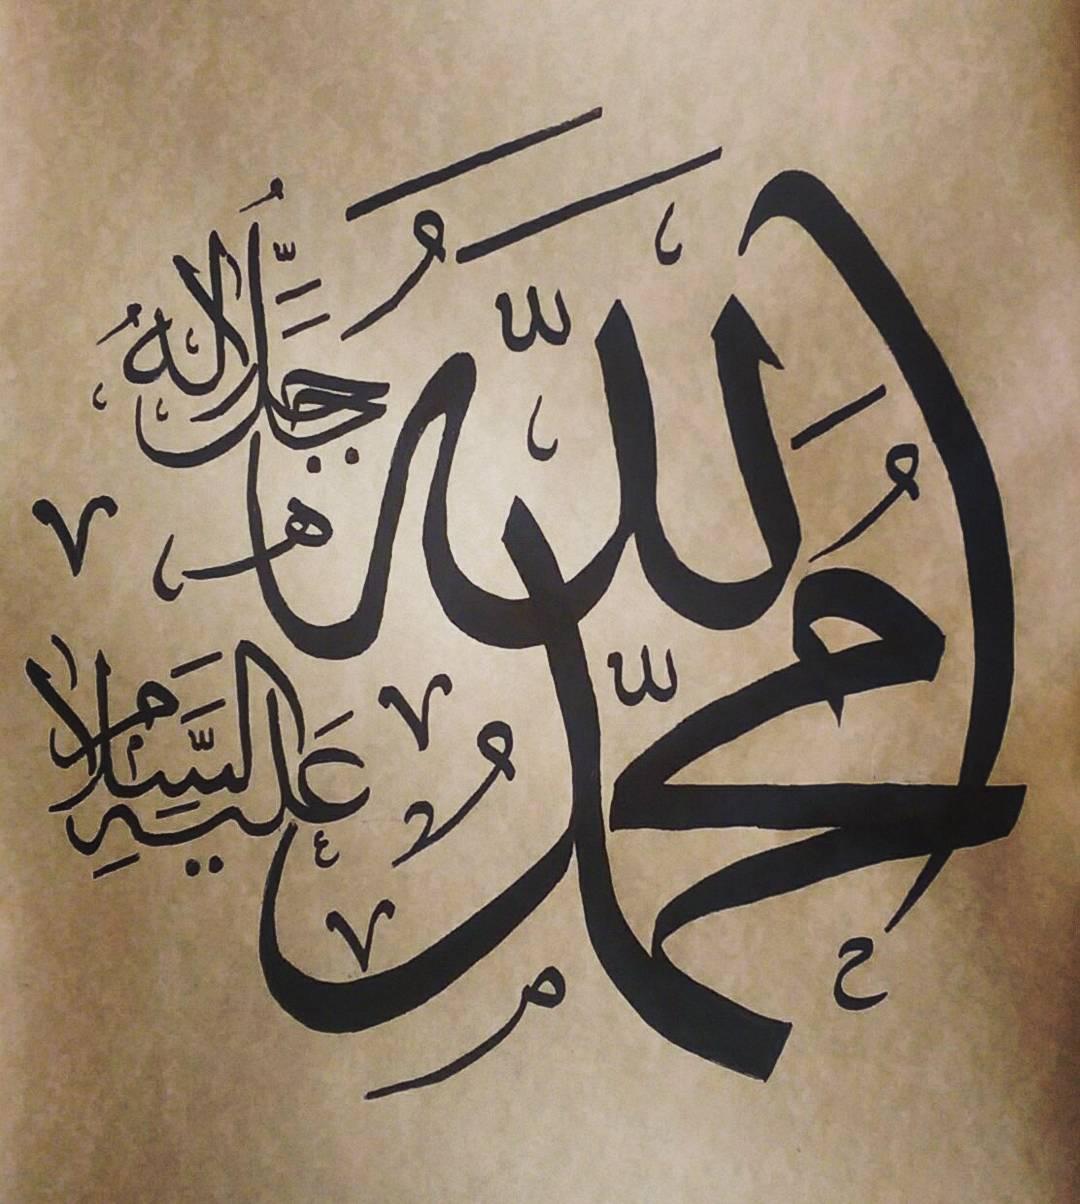 الله جَلَّ جَلَالُهُ
مُحَمَّد عَلَيْهِ السَّلَام